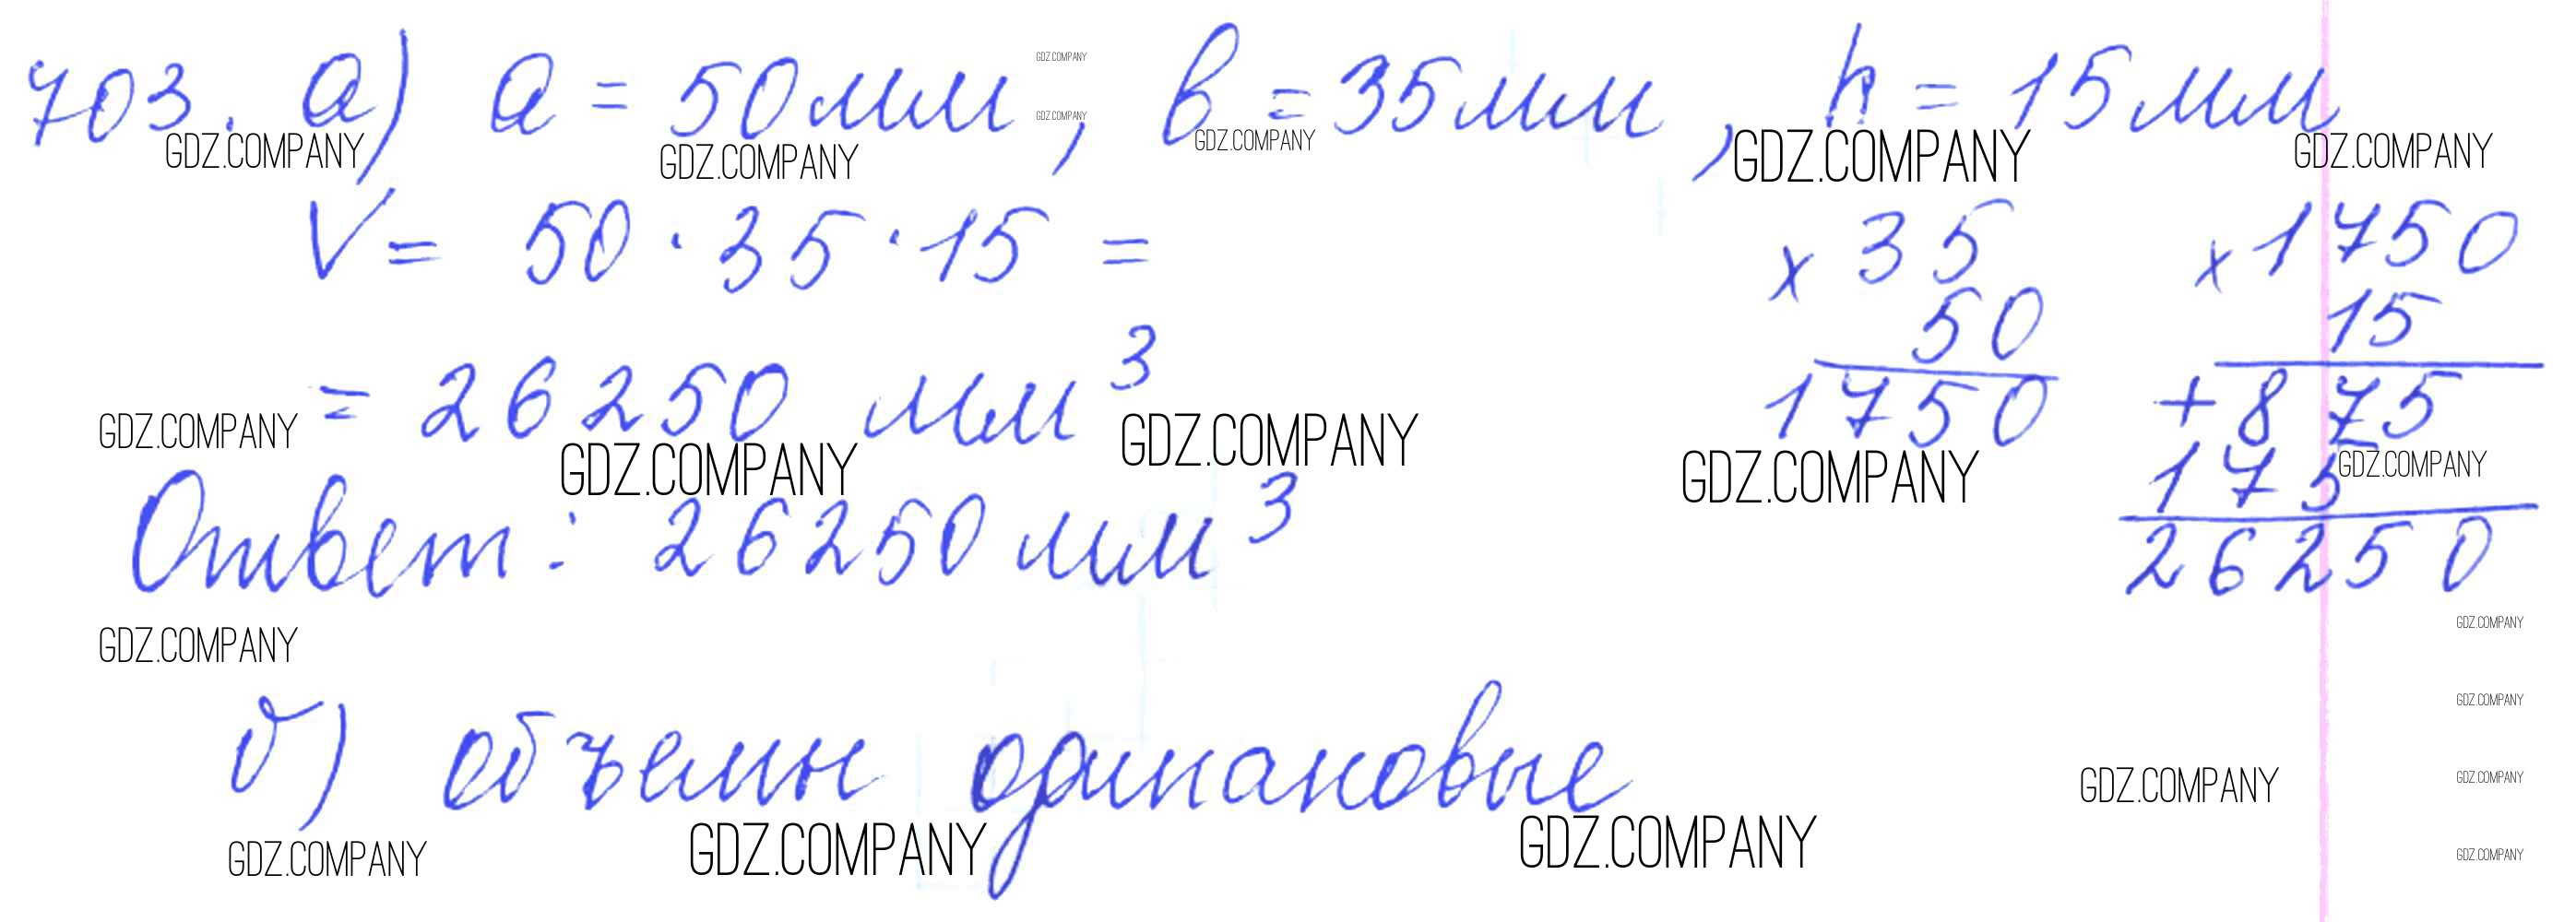 703. а) a = 50мм, b = 35мм, h = 15мм
GDZ.COMPANY
GDZ.COMPANY
GDZ.COMPANY GDZ.COMPANY GDZ.COMPANY GDZ.COMPANY GDZ.COMPANY
V = 50 · 35 · 15 =
× 35
50
1750
× 1750
15
+ 875
175
26250
= 26250 мм³
GDZ.COMPANY GDZ.COMPANY GDZ.COMPANY GDZ.COMPANY GDZ.COMPANY
Ответ: 26250 мм³
GDZ.COMPANY GDZ.COMPANY
GDZ.COMPANY
б) объемы одинаковые
GDZ.COMPANY GDZ.COMPANY
GDZ.COMPANY GDZ.COMPANY GDZ.COMPANY GDZ.COMPANY